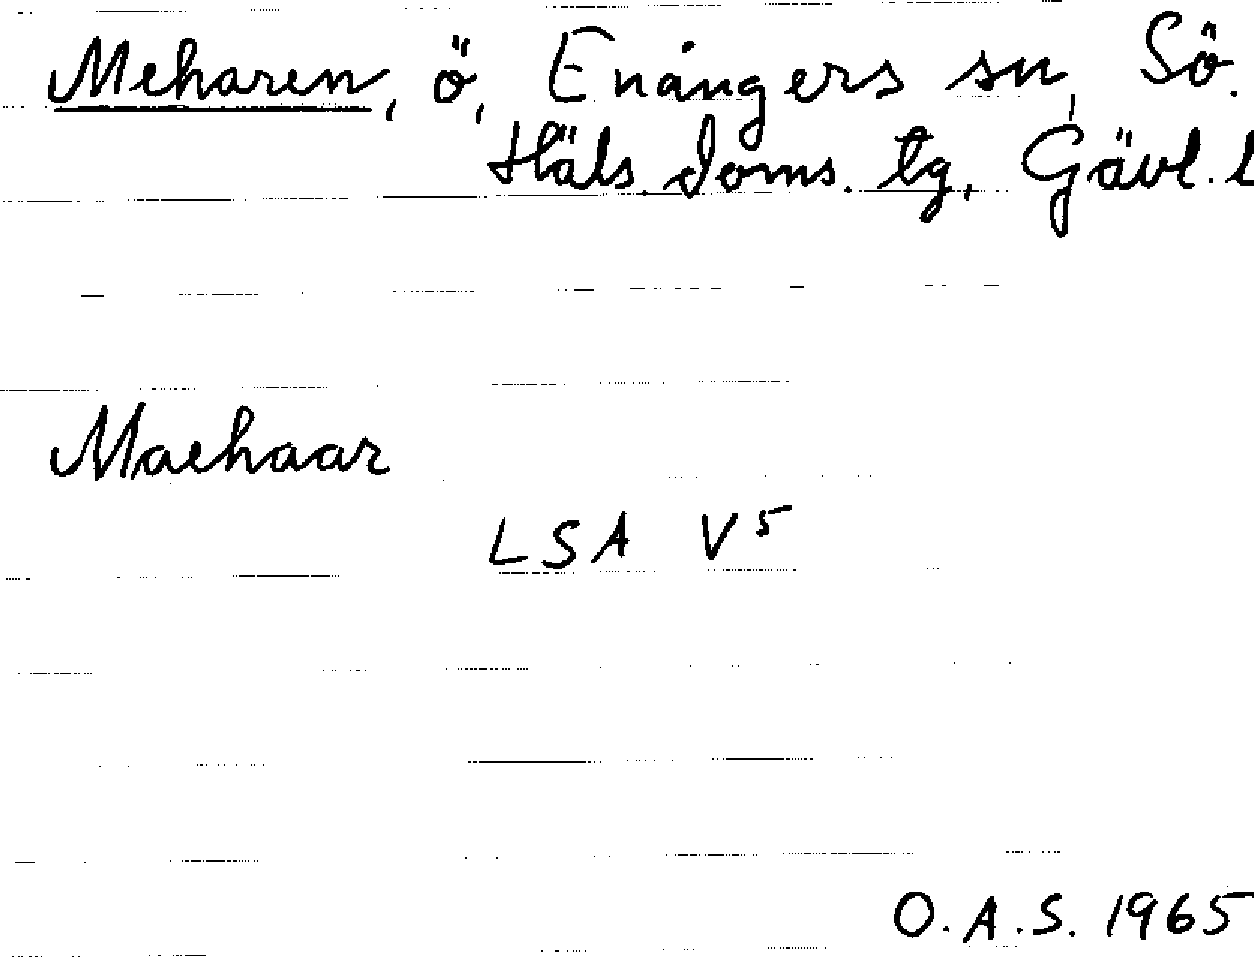 Meharen, ö, Enångers sn, Sö.
Häls. doms. tg, Gävl. l
Maehaar
LSA V5
O.A.S. 1965